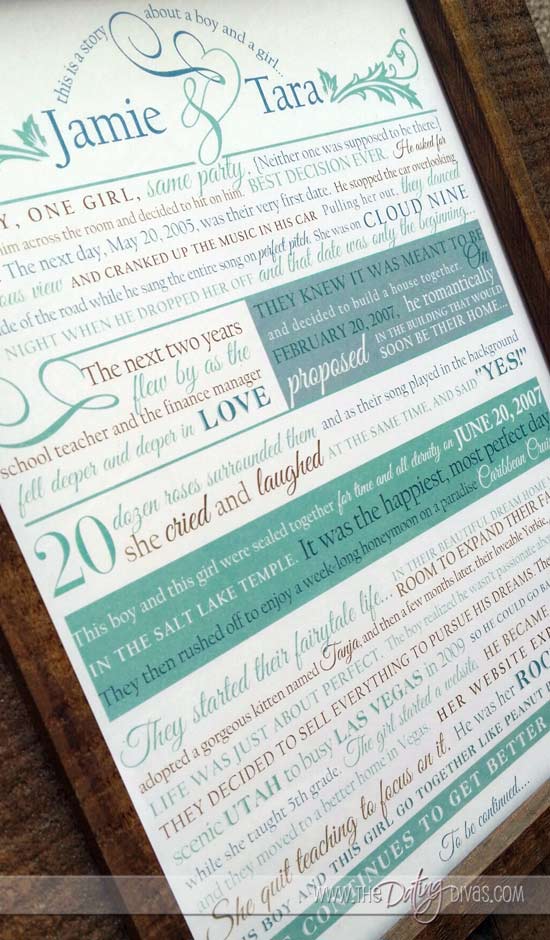 this is a story about a boy and a girl...
Jamie & Tara
Y, ONE GIRL, same party. [Neither one was supposed to be there.]
him across the room and decided to hit on him. BEST DECISION EVER. He asked for
The next day, May 20, 2005, was their very first date. He stopped the car overlooking
view AND CRANKED UP THE MUSIC IN HIS CAR. Pulling her out, they danced
of the road while he sang the entire song on perfect pitch. She was on CLOUD NINE
NIGHT WHEN HE DROPPED HER OFF and that date was only the beginning...
The next two years
flew by as the
school teacher and the finance manager
fell deeper and deeper in LOVE
THEY KNEW IT WAS MEANT TO BE
and decided to build a house together. On
FEBRUARY 20, 2007, he romantically
proposed IN THE BUILDING THAT WOULD SOON BE THEIR HOME...
20 dozen roses surrounded them and as their song played in the background
she cried and laughed AT THE SAME TIME, AND SAID "YES!"
This boy and this girl were sealed together for time and all eternity on JUNE 20, 2007
IN THE SALT LAKE TEMPLE. It was the happiest, most perfect day
They then rushed off to enjoy a week-long honeymoon on a paradise Caribbean
They started their fairytale life... IN THEIR BEAUTIFUL DREAM HOME
ROOM TO EXPAND THEIR
adopted a gorgeous kitten named Tanja, and then a few months later, their loveable Yorkie,
LIFE WAS JUST ABOUT PERFECT. The boy realized he wasn't passionate about
THEY DECIDED TO SELL EVERYTHING TO PURSUE HIS DREAMS. The
scenic UTAH to busy LAS VEGAS in 2009 SO HE COULD GO
while she taught 5th grade. The girl started a website. HE BECAME
and they moved to a better home in Vegas. HER WEBSITE
She quit teaching to focus on it. He was her ROCK
BOY AND THIS GIRL GO TOGETHER LIKE PEANUT
CONTINUES TO GET BETTER
To be continued....
WWW.THE Dating DIVAS.COM